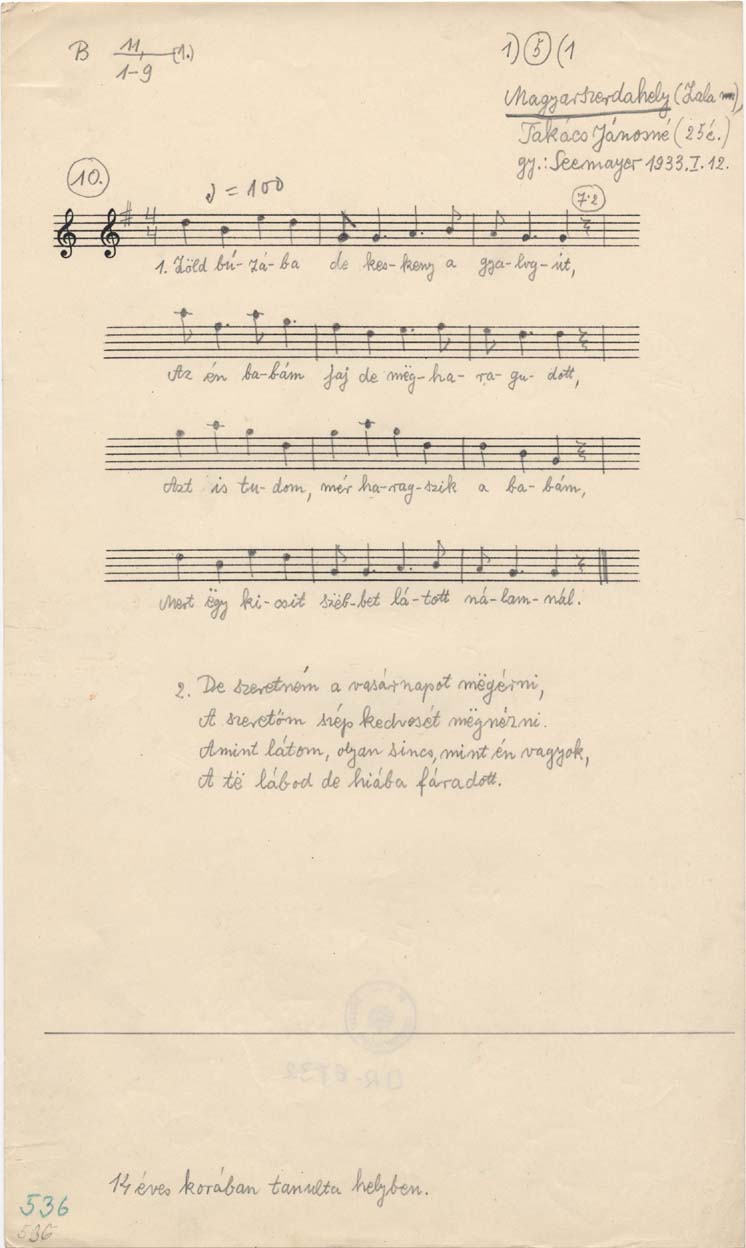 B 11, (1.)
1-9
1) 5 (1
Magyarszerdahely (Zala m),
Takács Jánosné (25é.)
gy.: Seemayer 1933.I.12.
10.
♩ = 100
7:2
4
4
1. Zöld bú-zá-ba de kes-keny a gya-log-út,
Az én ba-bám jaj de mëg-ha-ra-gu-dott,
Azt is tu-dom, mér ha-rag-szik a ba-bám,
Mert ëgy ki-csit szëb-bet lá-tott ná-lam-nál.
2. De szeretném a vasárnapot mëgérni,
A szeretöm szép kedvesét mëgnézni.
Amint látom, olyan sincs, mint én vagyok,
A të lábod de hiába fáradott.
14 éves korában tanulta helyben.
536
536